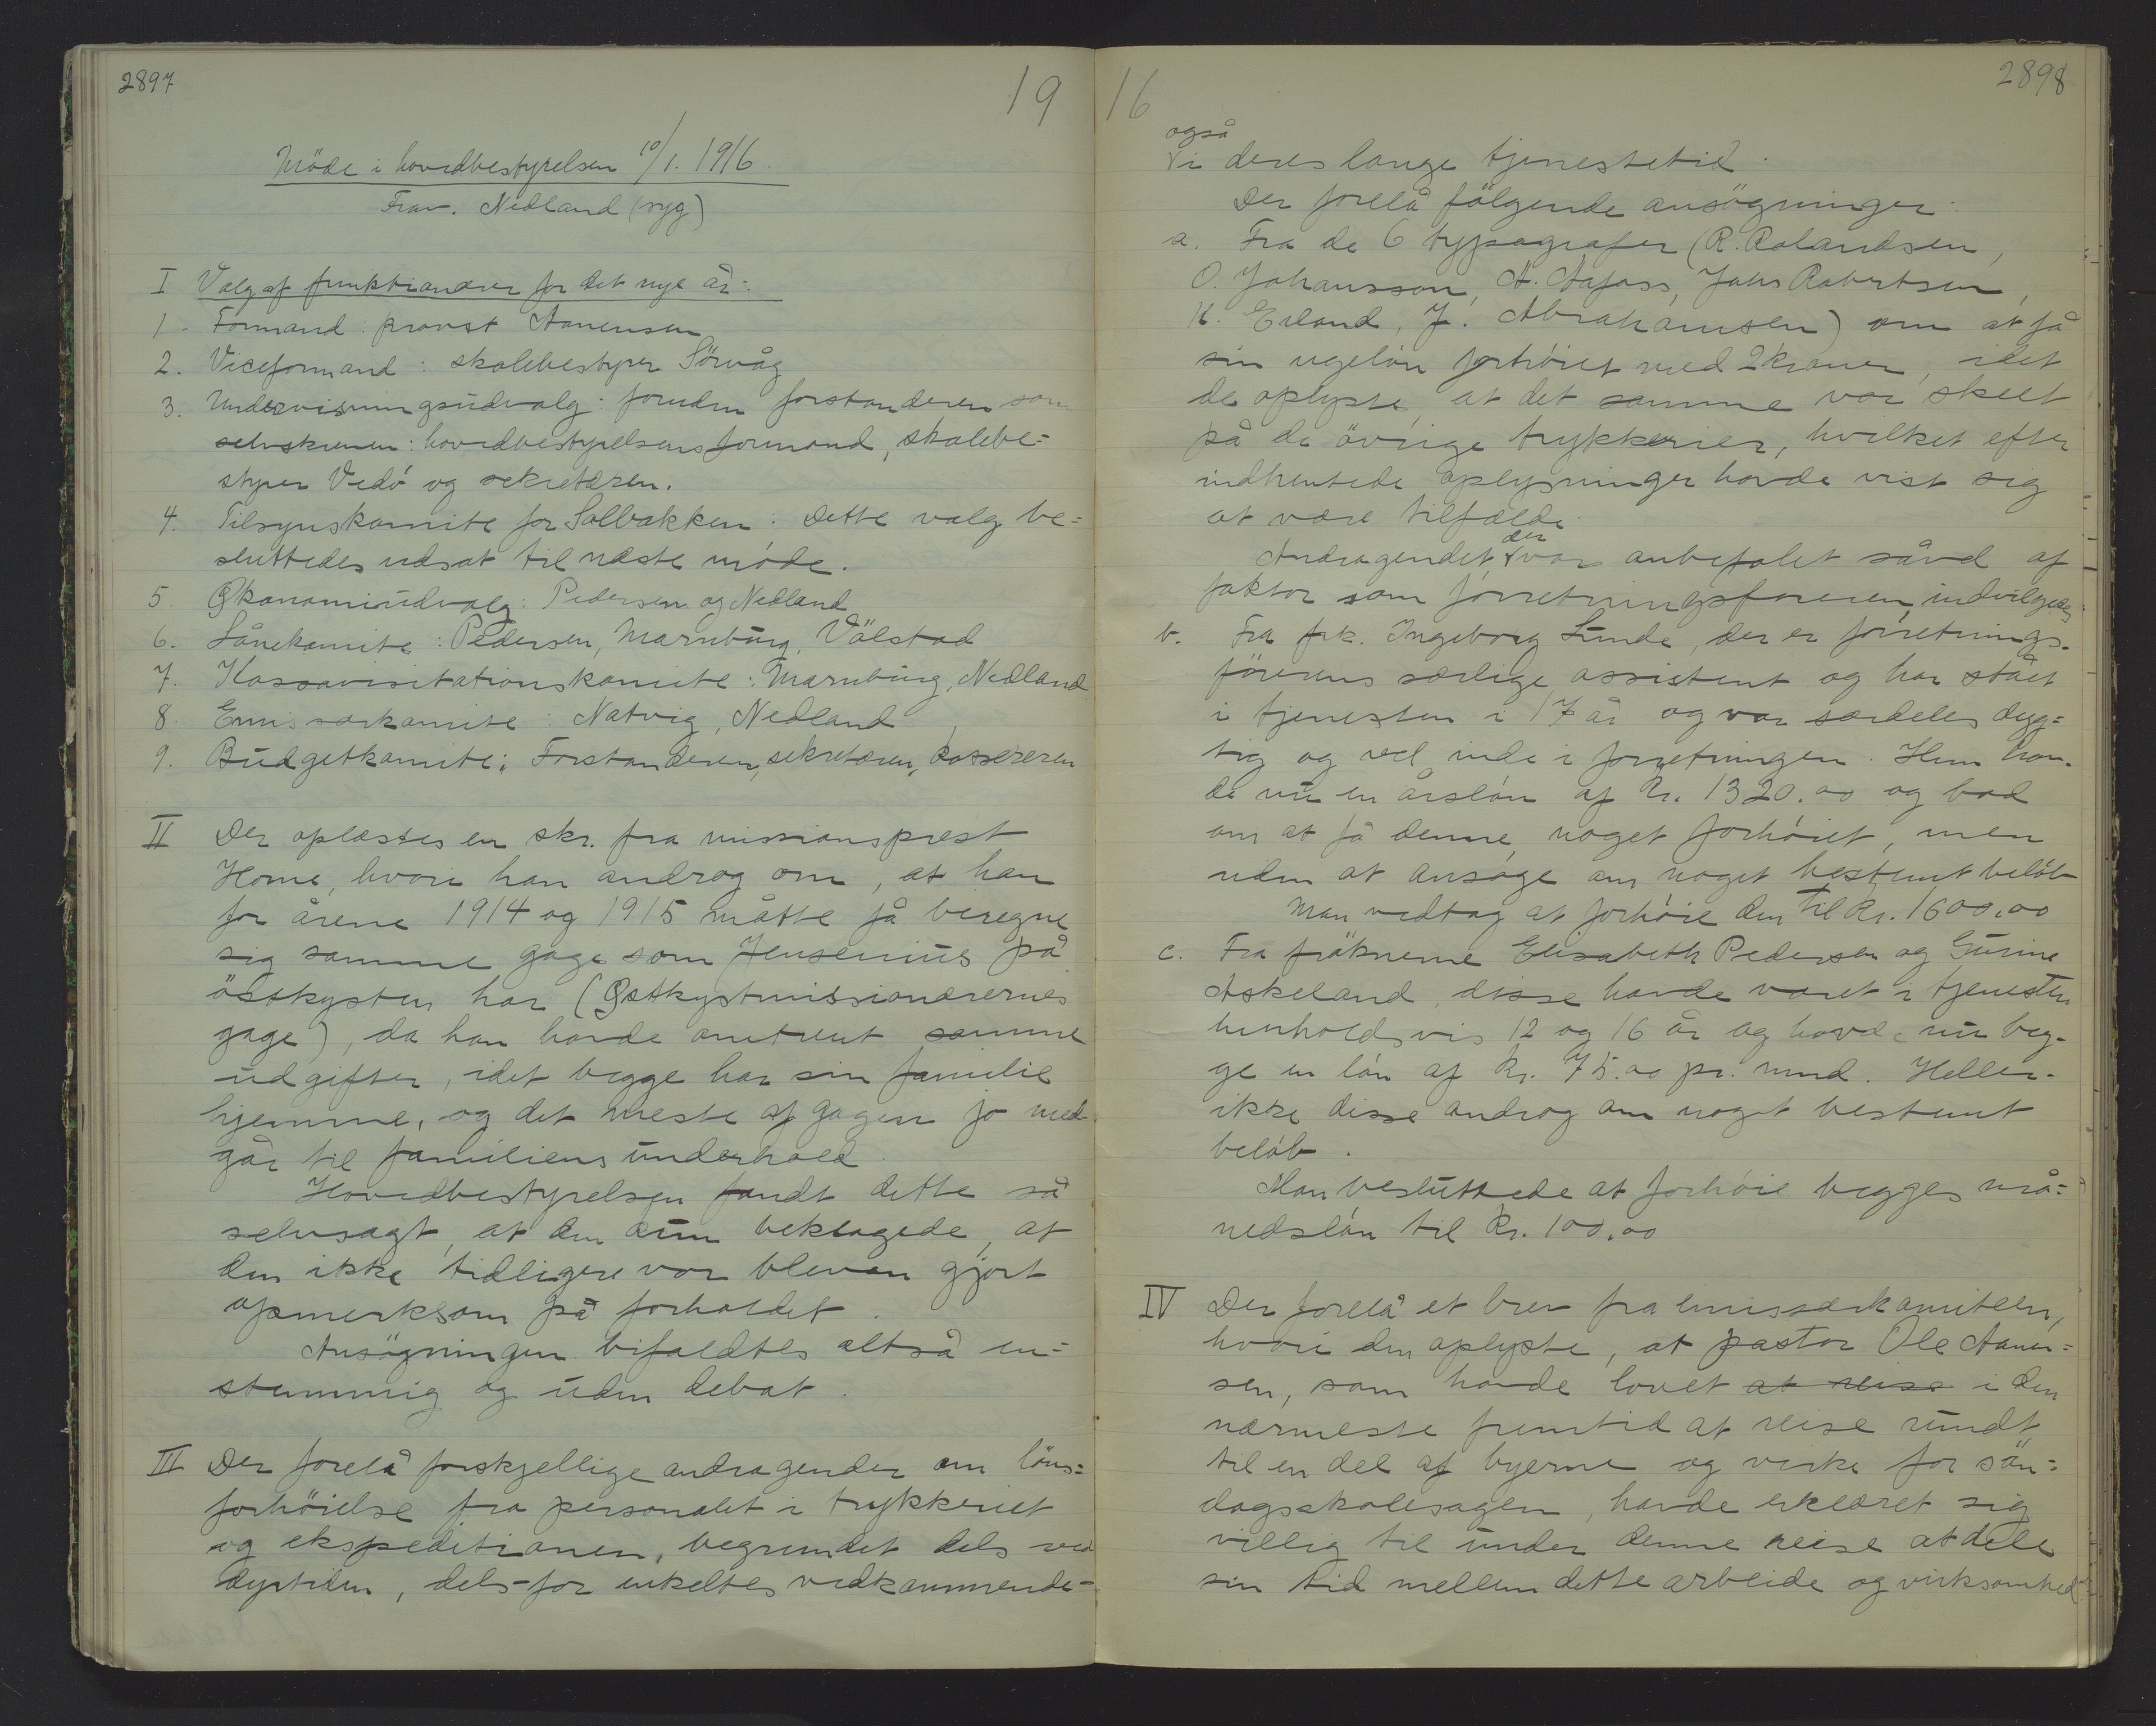 2897
19
Möde i hovedbestyrelsen 10/1. 1916.
Frav. Nedland (syg)
I Valg af funktionærer for det nye år:
1. Formand: provst Aanensen
2. Viceformand: skolebestyrer Sörvåg
3. Undervisningsudvalg: foruden forstanderen som
selvskreven: hovedbestyrelsens formand, skolebe=
styrer Vedö og sekretæren.
4. Tilsynskomite for Solbakken: Dette valg be=
sluttedes udsat til næste möde.
5. Økonomiudvalg: Pedersen og Nedland
6. Lånekomite: Pedersen, Marnburg, Völstad
7. Kassavisitationskomite: Marnburg, Nedland
8. Emissærkomite: Natvig, Nedland
9. Budgetkomite: Forstanderen, sekretæren, kassereren
II Der oplæstes en skr. fra missionsprest
Home, hvori han androg om, at han
for årene 1914 og 1915 måtte få beregne
sig samme gage som Jensenius på
östkysten har (Østkystmissionærernes
gage), da han havde omtrent samme
udgifter, idet begge har sin familie
hjemme, og det meste af gagen jo med
går til familiens underhold.
Hovedbestyrelsen fandt dette så
selvsagt, at den kun beklagede, at
den ikke tidligere var bleven gjort
opmerksom på forholdet.
Ansögningen bifaldtes altså en=
stemmig og uden debat.
III Der forelå forskjellige andragender om löns=
forhöielse fra personalet i trykkeriet
og ekspeditionen, begrundet dels ved
dyrtiden, dels for enkeltes vedkommende
16
2898
også
i deres lange tjenestetid.
Der forelå fölgende ansögninger:
a. Fra de 6 typografer (R. Rolandsen,
O. Johansson, A. Aafoss, Johs Robertsen,
K. Eiland, J. Abrahamsen) om at få
sin ugelön forhöiet med 2 kroner, idet
de oplyste, at det samme var skeet
på de övrige trykkerier, hvilket efter
indhentede oplysninger havde vist sig
at være tilfælde.
der
Andragendet, var anbefalet såvd af
faktor som forretningsföreren, indvilgedes
b. Fra frk. Ingeborg Lunde, der er forretnings-
förerens særlige assistent og har stået
i tjenesten i 17 år og var særdeles dyg=
tig og vel inde i forretningen. Hun hav-
de nu en årslön af Kr. 1320.00 og bad
om at få denne noget forhöiet, men
uden at ansöge om noget bestemt belöb
Man vedtog at forhöie den til Kr. 1600,00
c. Fra fröknerne Elisabeth Pedersen og Gurine
Askeland, disse havde været i tjenesten
henholdsvis 12 og 16 år og havde nu beg-
ge en lön af Kr. 75.00 pr. mnd. Heller-
ikke disse androg om noget bestemt
belöb.
Man besluttede at forhöie begges må=
nedslön til Kr. 100,00
IV Der forelå et brev fra emissærkomiteen,
hvori den oplyste, at pastor Ole Aanen=
sen, som havde lovet at reise i den
nærmeste fremtid at reise rundt
til en del af byerne og virke for sön=
dagsskolesagen, havde erklæret sig
villig til under denne reise at dele
sin tid mellem dette arbeide og virksomhed